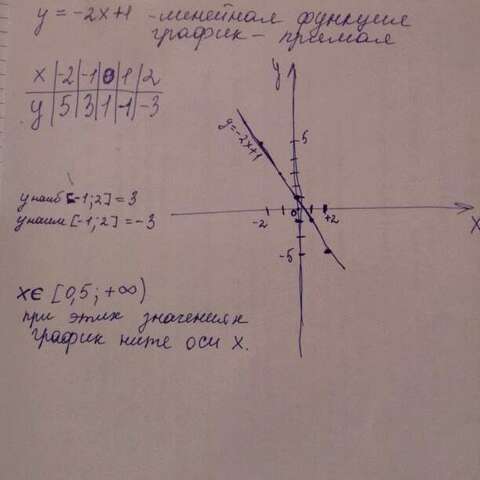 y = -2x+1 - линейная функция
график - прямая
x | -2 | -1 | 0 | 1 | 2
y | 5 | 3 | 1 | -1 | -3
y
5
y=-2x+1
-2 0 +2
x
-5
y наиб [-1;2] = 3
y наим [-1;2] = -3
x∈ [0,5; +∞)
при этих значениях
график ниже оси x.